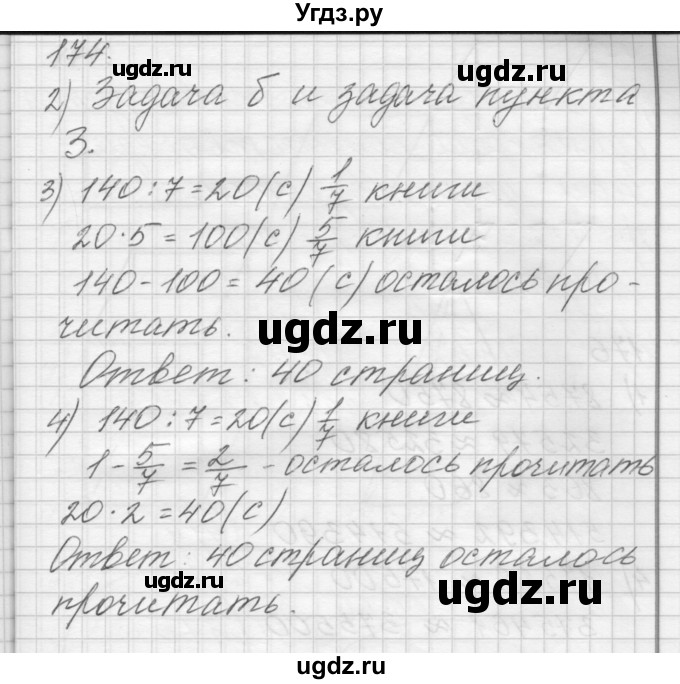 Угдз.ру
174.
ugdz.ru
ugdz.ru
2) Задача б и задача пункта
3.
3) 140 : 7 = 20 (с) 1/7 книги
20 · 5 = 100 (с) 5/7 книги
140 - 100 = 40 (с) осталось про-
читать.
ugdz.ru
Ответ: 40 страниц.
4) 140 : 7 = 20 (с) 1/7 книги
1 - 5/7 = 2/7 - осталось прочитать
20 · 2 = 40 (с)
Ответ: 40 страниц осталось
прочитать.
ugdz.ru
ugdz.ru
ugdz.ru